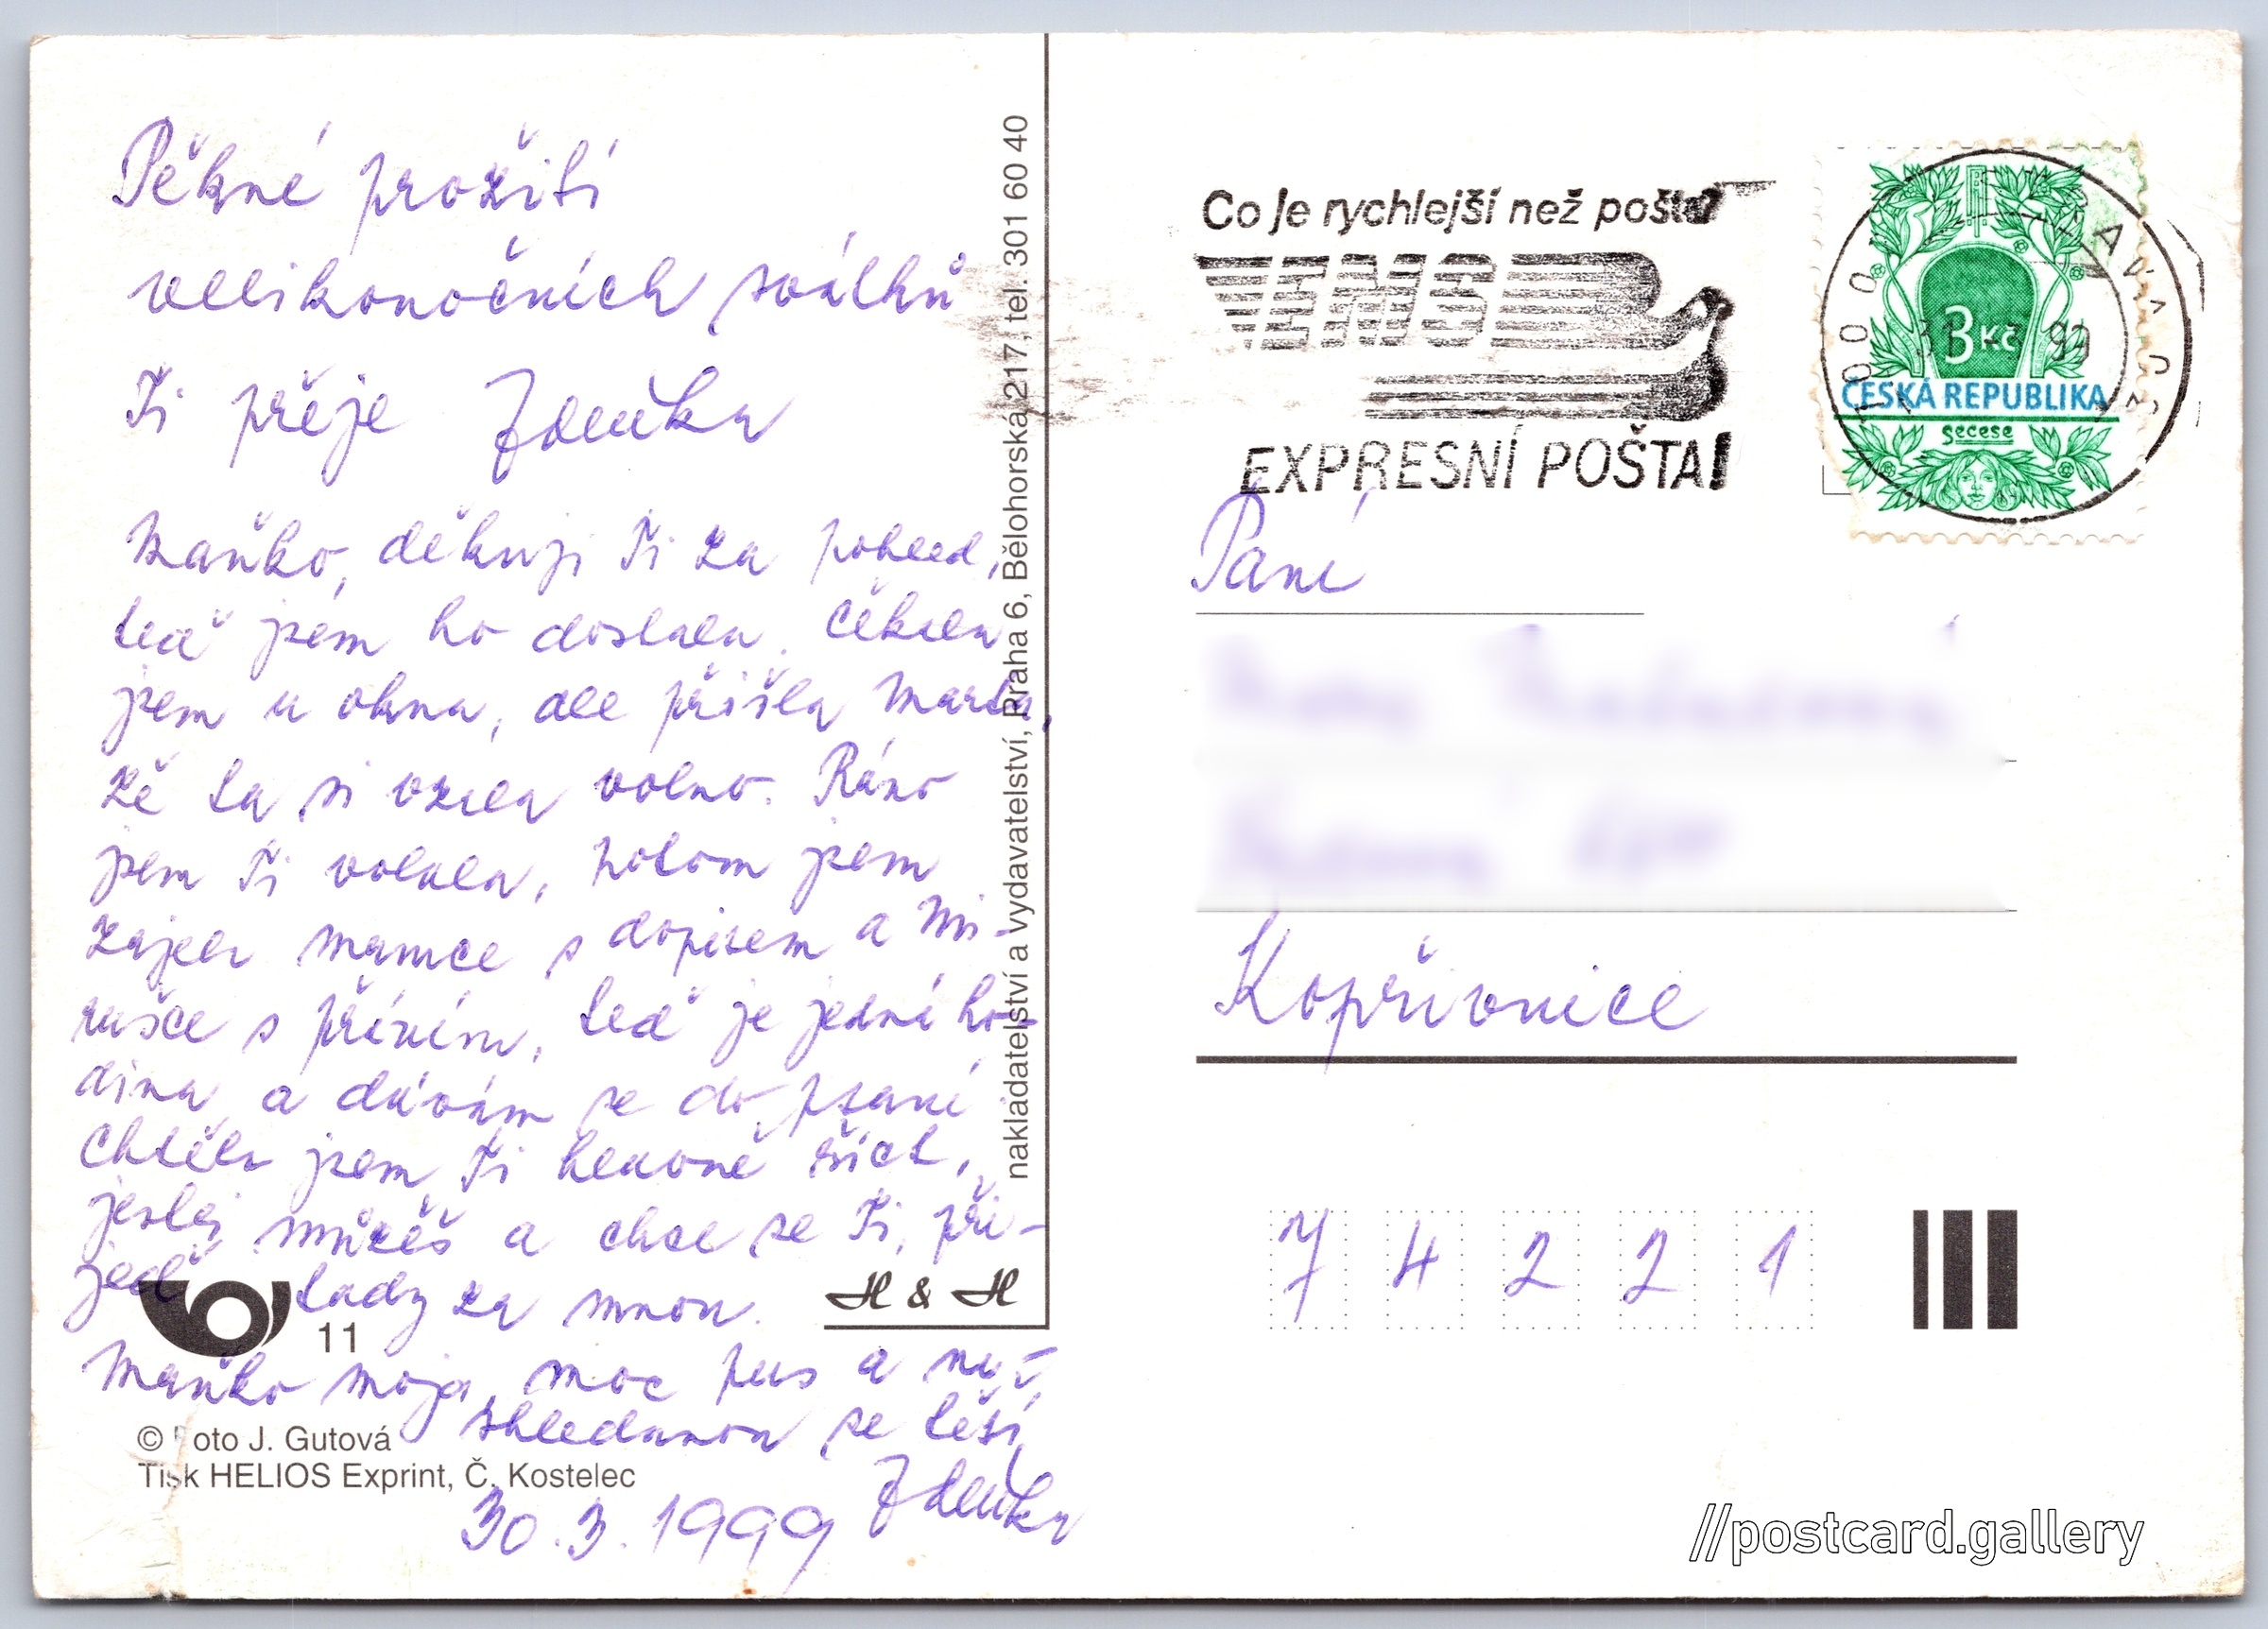 Pěkné prožití
velikonočních svátků
Ti přeje Zdeňka
Maňko, děkuji Ti za pohled,
teď jsem ho dostala. Čekala
jsem u okna, ale přišla Marta,
že ta si vzala volno. Ráno
jsem Ti volala, potom jsem
zajela mamce s dopisem a Mi-
rušce s přáním, teď je jedná ho-
dina a dávám se do psaní
Chtěla jsem Ti hlavně říct,
jestej můžeš a chce se Ti, při-
jeď tady za mnou.
Maňko moja, moc pus a na
shledanou se těší
Zdeňka
30.3.1999
11
H & H
© Foto J. Gutová
Tisk HELIOS Exprint, Č. Kostelec
nakladatelství a vydavatelství, Praha 6, Bělohorská 217, tel. 301 60 40
Co je rychlejší než pošta?
EMS
EXPRESNÍ POŠTA!
3 Kč
ČESKÁ REPUBLIKA
secese
Paní
Kopřivnice
7 4 2 2 1
//postcard.gallery